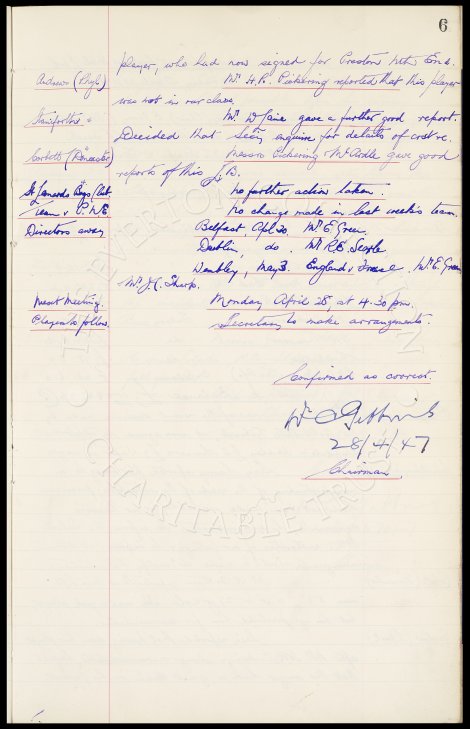 6
player, who had now signed for Preston Nth End.
Andrews (Rhyl) Mr. H.R. Pickering reported that this player
was not in our class.
Stainforth Mr. W. gave a further good report.
Decided that Secy. enquire for details of cost &c.
Corbett (Doncaster) Messrs Pickering & McArdle gave good
reports of this F.B.
St. Leonards Boys Club No further action taken.
Team v P.N.E. No change made in last week's team.
Directors away Belfast, Apl 30 Mr. E. Green.
Dublin, do. Mr. R.E. Searle
Wembley, May 3. England v France, Mr. E. Green
Mr. J.C. Sharp.
Next Meeting. Monday April 28, at 4.30 p.m.
Players to follow. Secretary to make arrangements.
Confirmed as correct.
28/4/47
Chairman.
EVERTON
CHARITABLE TRUST